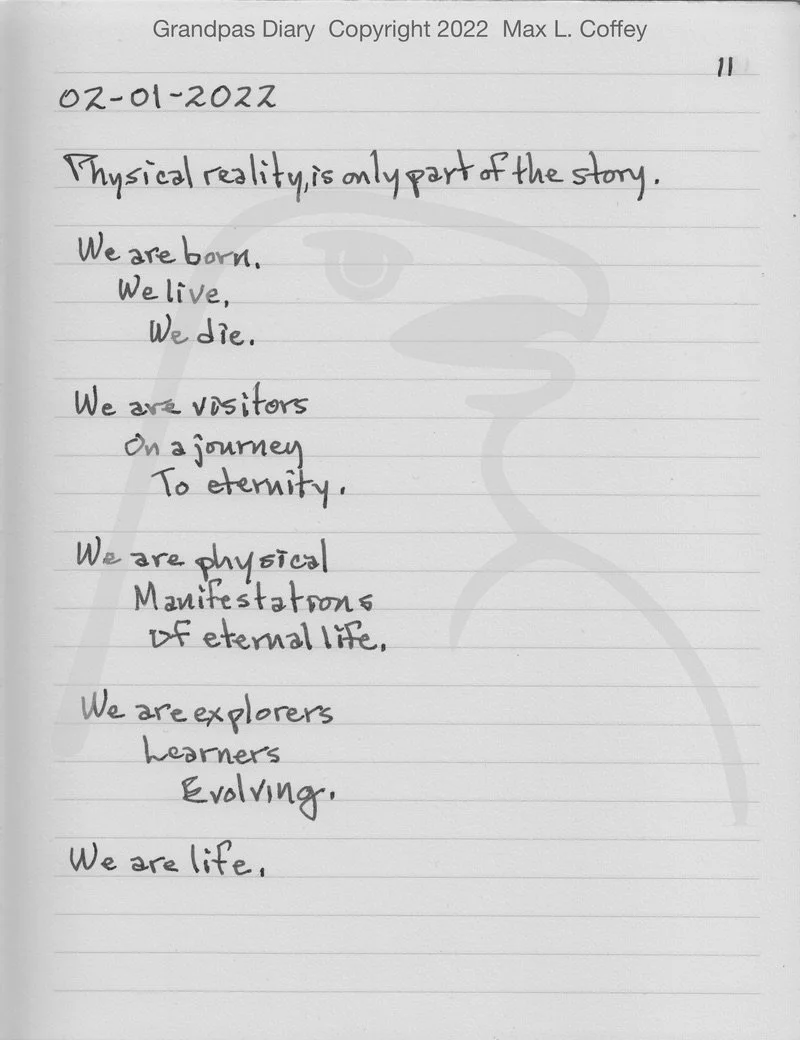 Grandpas Diary Copyright 2022 Max L. Coffey
11
02-01-2022
Physical reality, is only part of the story.
We are born.
We live,
We die.
We are visitors
On a journey
To eternity.
We are physical
Manifestations
Of eternal life.
We are explorers
Learners
Evolving.
We are life.